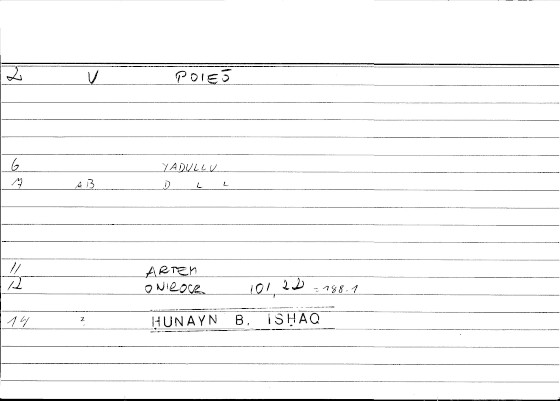 2 V POIEŌ
6 YADULLU
7 AB D L L
11 ARTEM
12 ONIROCR 101,22 = 188.1
14 2 ḤUNAYN B. ISḤAQ